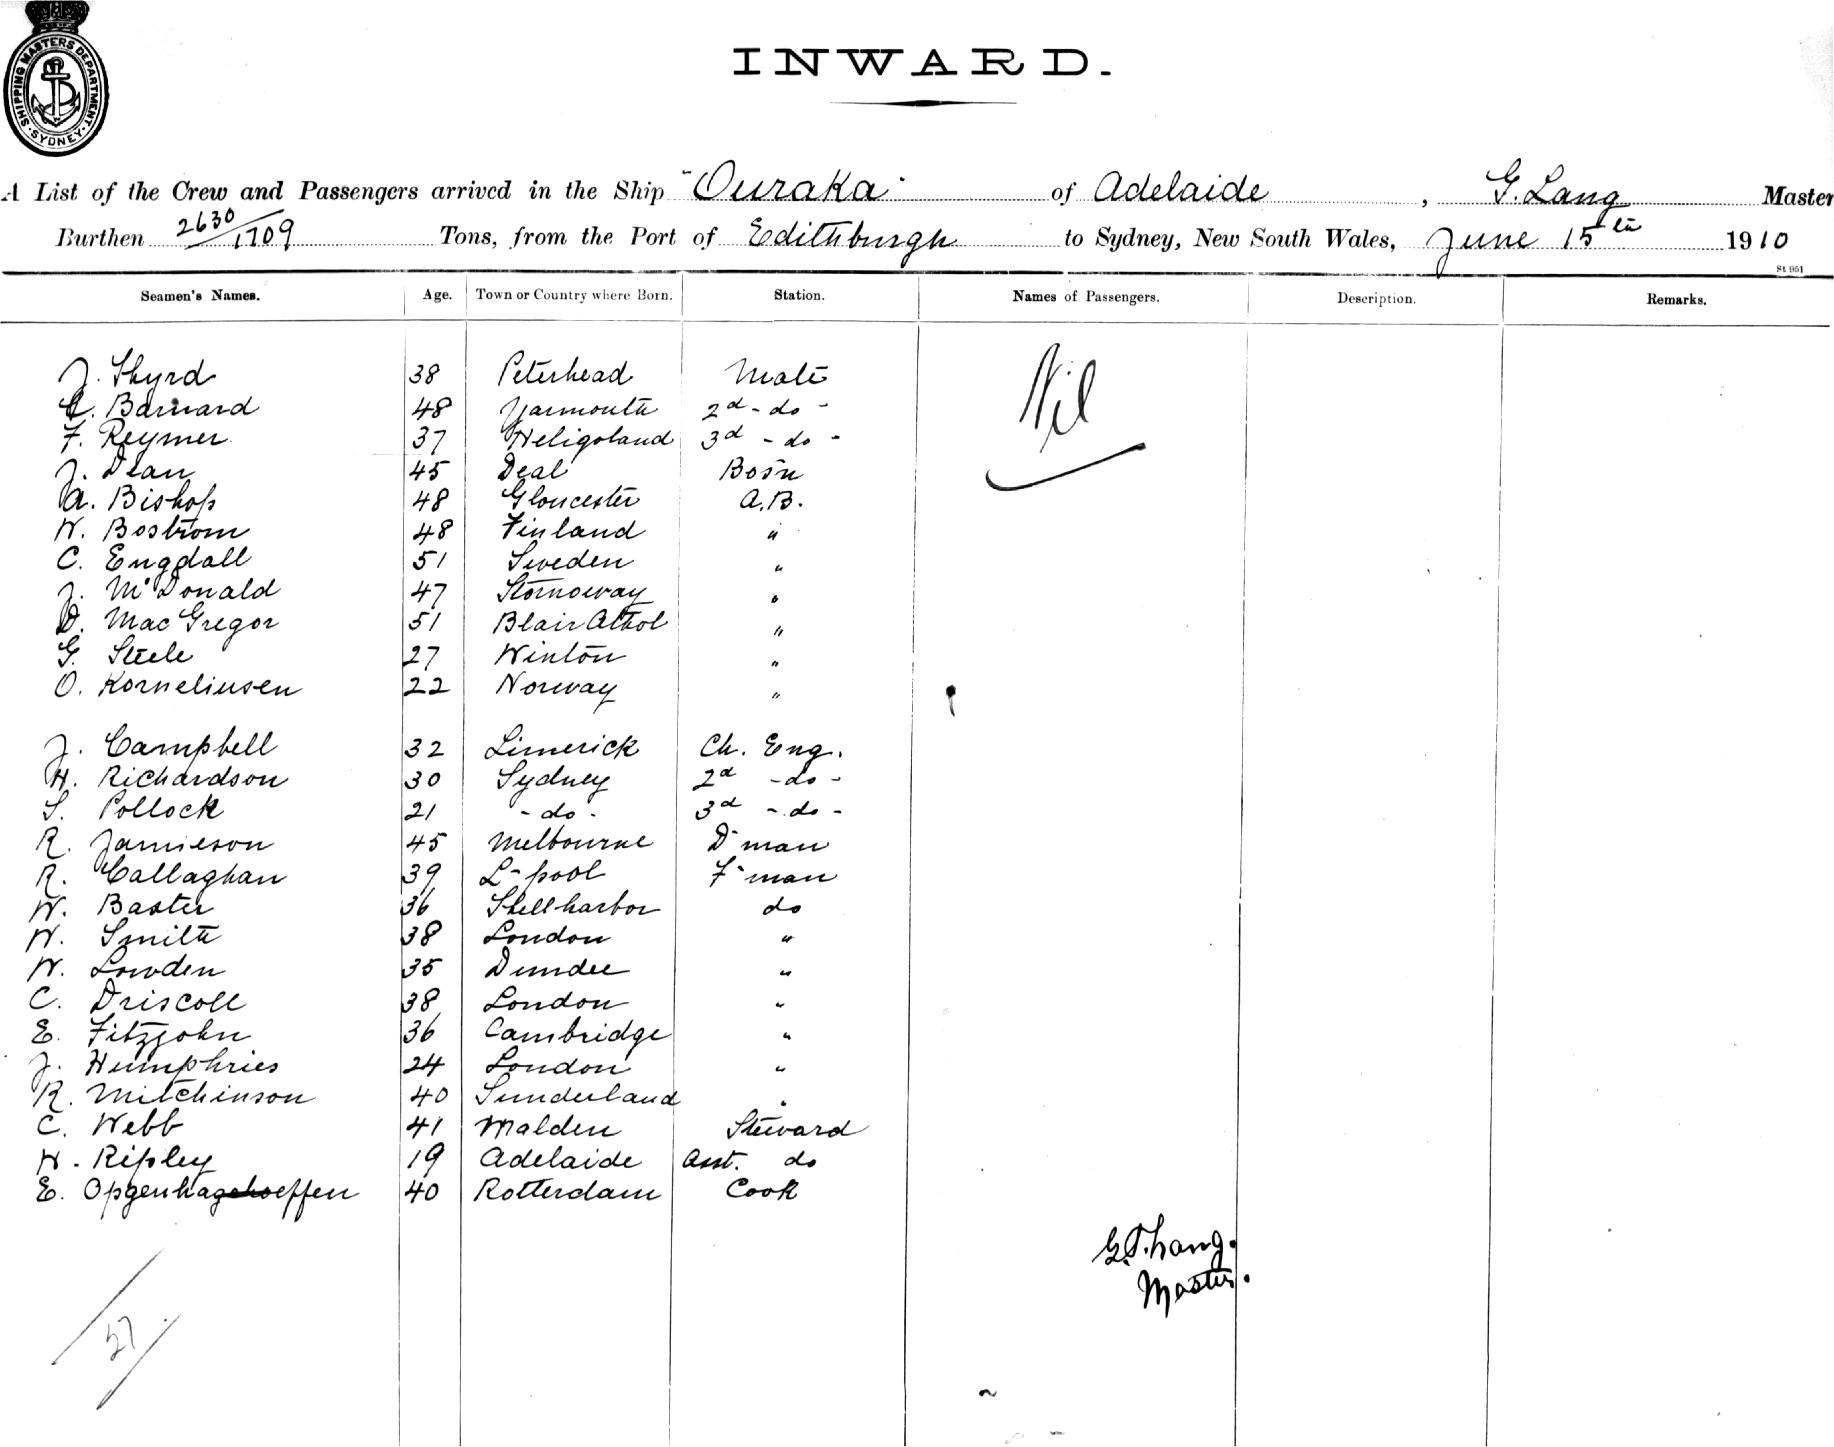 SHIPPING MASTERS DEPARTMENT. SYDNEY.
INWARD.
A List of the Crew and Passengers arrived in the Ship "Ouraka" of Adelaide, G. Lang Master
Burthen 2630/1709 Tons, from the Port of Edithburgh to Sydney, New South Wales, June 15th 1910
St 951
Seamen's Names. Age. Town or Country where Born. Station. Names of Passengers. Description. Remarks.
J. Thyrd 38 Peterhead Mate Nil
C. Barnard 48 Yarmouth 2d - do -
F. Reymer 37 Heligoland 3d - do -
J. Dean 45 Deal Bosn
A. Bishop 48 Gloucester A.B.
W. Bostrom 48 Finland "
C. Engdall 51 Sweden "
J. McDonald 47 Stornoway "
D. MacGregor 51 Blair Athol "
G. Steele 27 Winton "
O. Korneliusen 22 Norway "
J. Campbell 32 Limerick Ch. Eng.
H. Richardson 30 Sydney 2d - do -
S. Pollock 21 - do - 3d - do -
R. Jamieson 45 Melbourne D-man
R. Callaghan 39 L-pool F-man
W. Baxter 36 Shellharbor do
W. Smith 38 London "
W. Lowden 35 Dundee "
C. Driscoll 38 London "
E. Fitzjohn 36 Cambridge "
J. Humphries 24 London "
R. Mitchinson 40 Sunderland "
C. Webb 41 Malden Steward
H. Ripley 19 Adelaide Asst. do
E. 40 Rotterdam Cook
G.T. Lang.
Master.